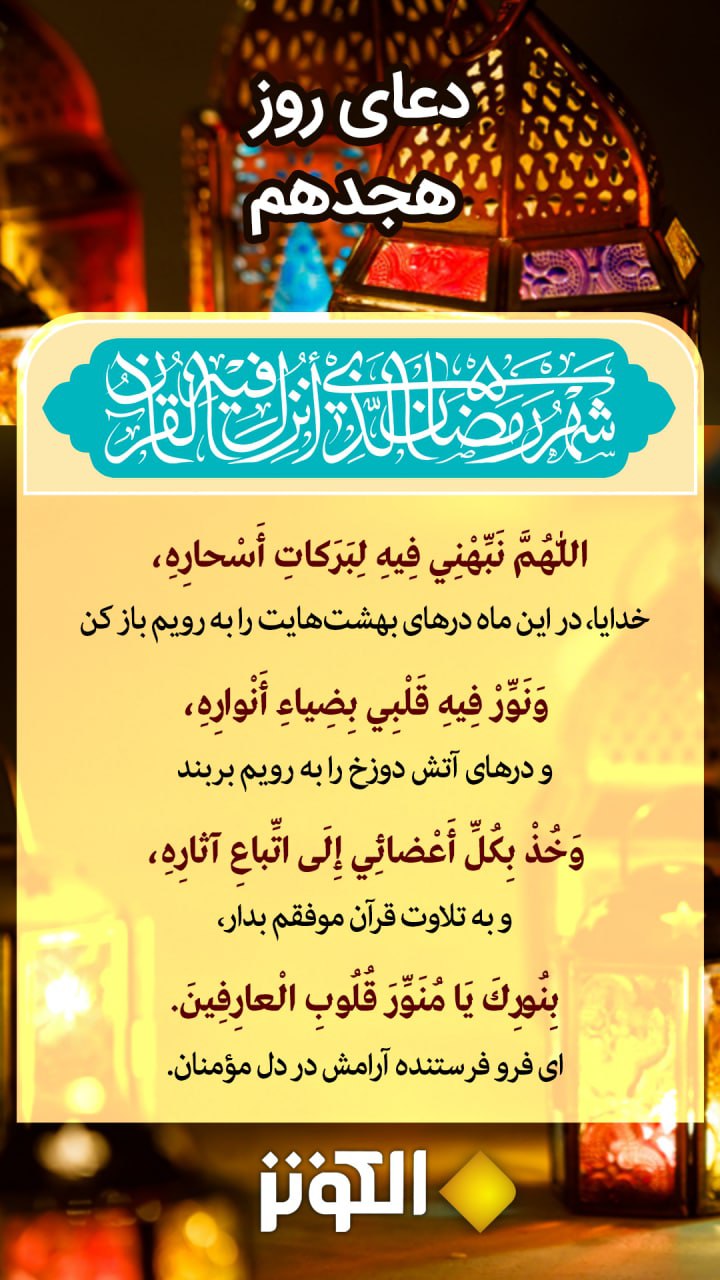 دعای روز
هجدهم
شَهْرُ رَمَضَانَ الَّذِي أُنْزِلَ فِيهِ الْقُرْآنُ
اللّٰهُمَّ نَبِّهْنِي فِيهِ لِبَرَكاتِ أَسْحارِهِ،
خدایا، در این ماه درهای بهشت‌هایت را به رویم باز کن
وَنَوِّرْ فِيهِ قَلْبِي بِضِياءِ أَنْوارِهِ،
و درهای آتش دوزخ را به رویم بربند
وَخُذْ بِكُلِّ أَعْضائِي إِلَى اتِّباعِ آثارِهِ،
و به تلاوت قرآن موفقم بدار،
بِنُورِكَ يَا مُنَوِّرَ قُلُوبِ الْعارِفِينَ.
ای فرو فرستنده آرامش در دل مؤمنان.
الكوثر